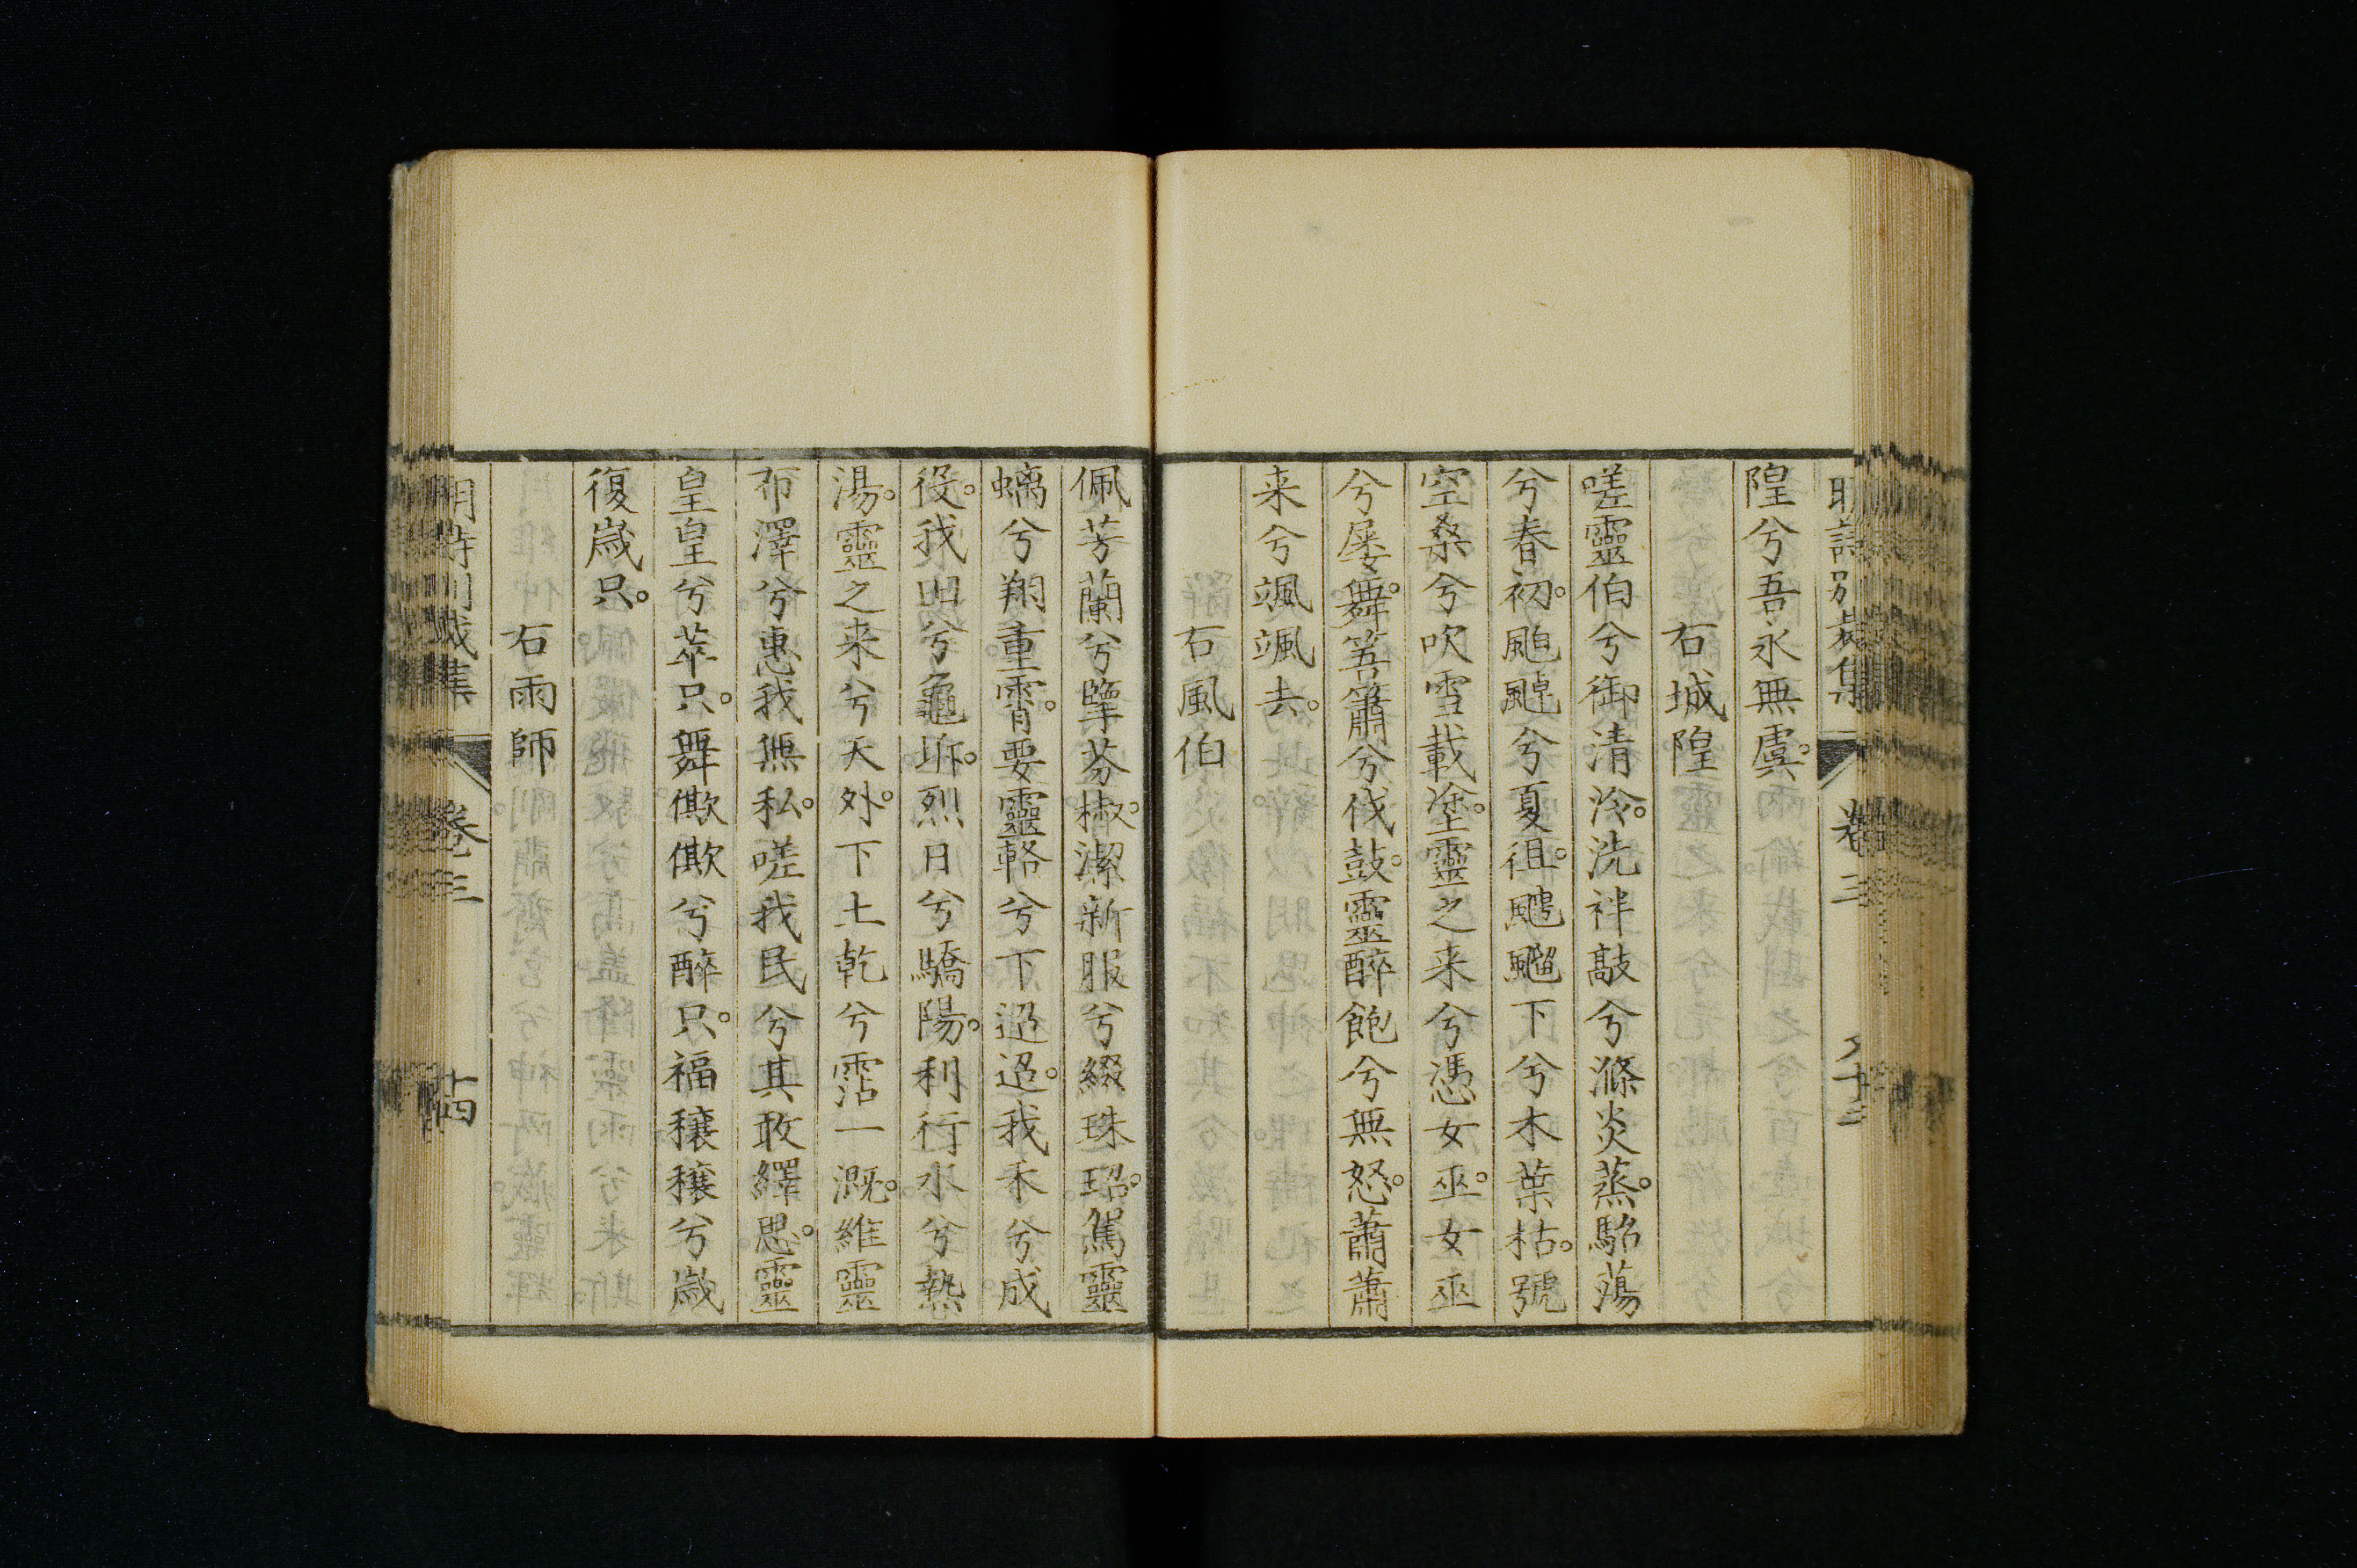 隍兮吾永無虞。
右城隍
嗟靈伯兮御清泠。洗袢敲兮滌炎蒸。駘蕩
兮春初。颭颭兮夏徂。飀下兮木葉枯。號
空桑兮吹雪載塗。靈之来兮憑女巫。女巫
兮屡舞。簫兮伐鼓。靈醉飽兮無怒。蕭蕭
来兮颯颯去。
右風伯
佩芳蘭兮擥芬椒。潔新服兮綴珠玿。駕靈
螭兮翔重霄。要靈輅兮下迢迢。我禾兮成
役。我田兮龜坼。烈日兮驕陽。利行水兮熱
湯。靈之来兮天外。下土乾兮霑一溉。維靈
布澤兮惠我無私。嗟我民兮其敢繹思。靈
皇皇兮萃只。舞僛僛兮醉只。福穰穰兮歲
復歲只。
右雨師
卷三